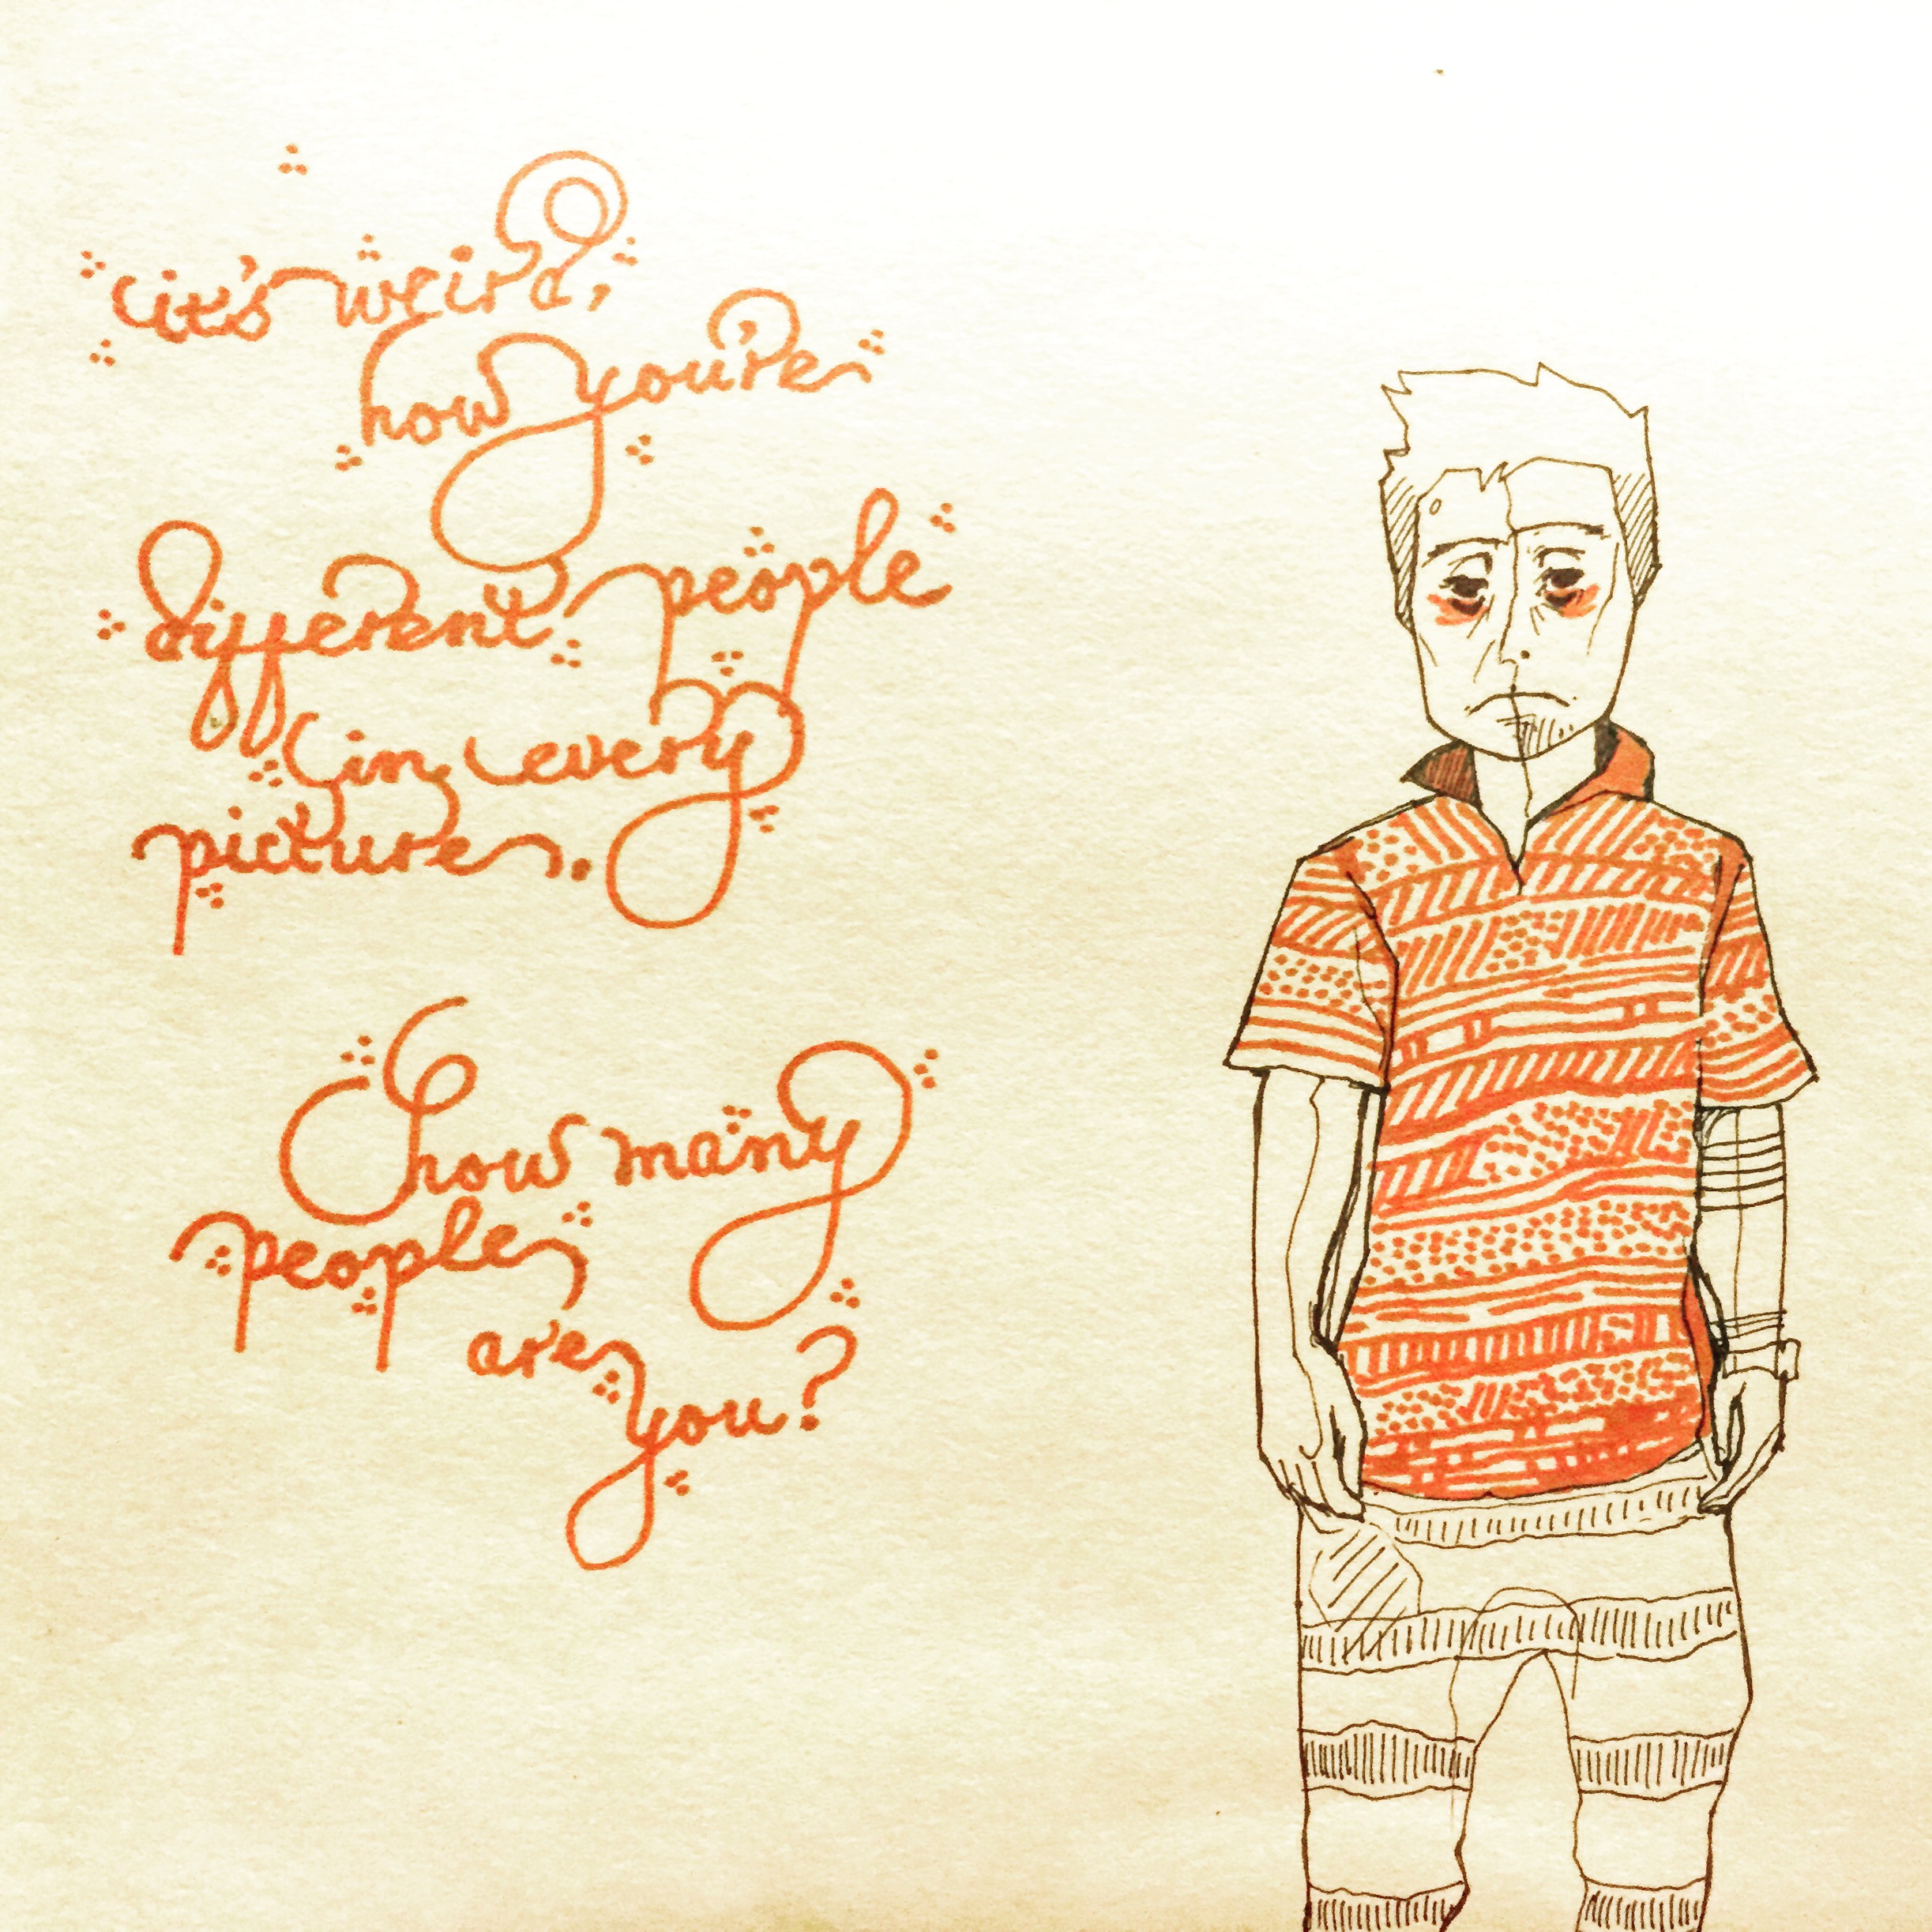 it's weird,
how you're
different people
in every
picture.
how many
people
are
you?